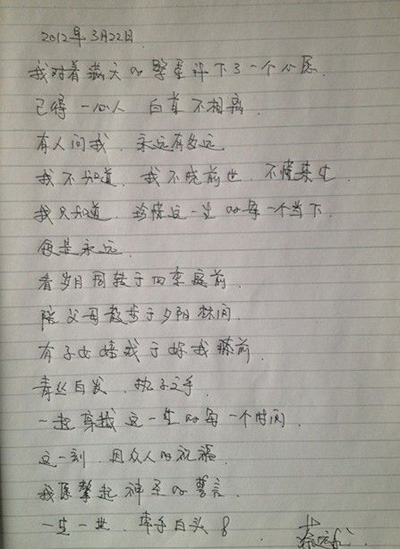 2012年3月22日
我对着满天的繁星许下了一个心愿.
已得一心人 白首不相离.
有人问我.永远有多远
我不知道.我不晓前世.不懂来生.
我只知道.珍惜这一生的每一个当下.
便是永远.
看岁月周转于四季庭前.
陪父母散步于夕阳林间.
有子女嬉戏于你我膝前.
青丝白发.执子之手.
一起穿越这一生的每一个时间.
这一刻.因众人的祝福.
我愿擎起神圣的誓言.
一生一世.牵手白头